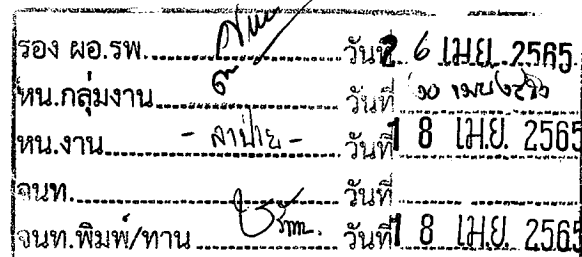 รอง ผอ.รพ. วันที่ 26 เม.ย. 2565
หน.กลุ่มงาน วันที่
หน.งาน - ลาป่วย - วันที่ 18 เม.ย. 2565
จนท. วันที่
จนท.พิมพ์/ทาน วันที่ 18 เม.ย. 2565